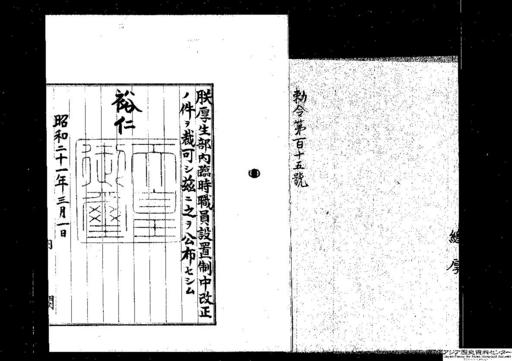 勅令第百十五號
朕厚生部內臨時職員設置制中改正
ノ件ヲ裁可シ茲ニ之ヲ公布セシム
裕仁
天皇御璽
昭和二十一年三月一日
アジア歴史資料センター